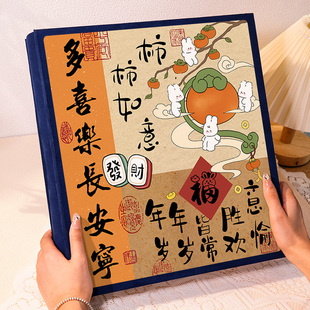 多喜樂長安寧
柿柿如意
發財
福
年年皆胜意
岁岁常欢愉